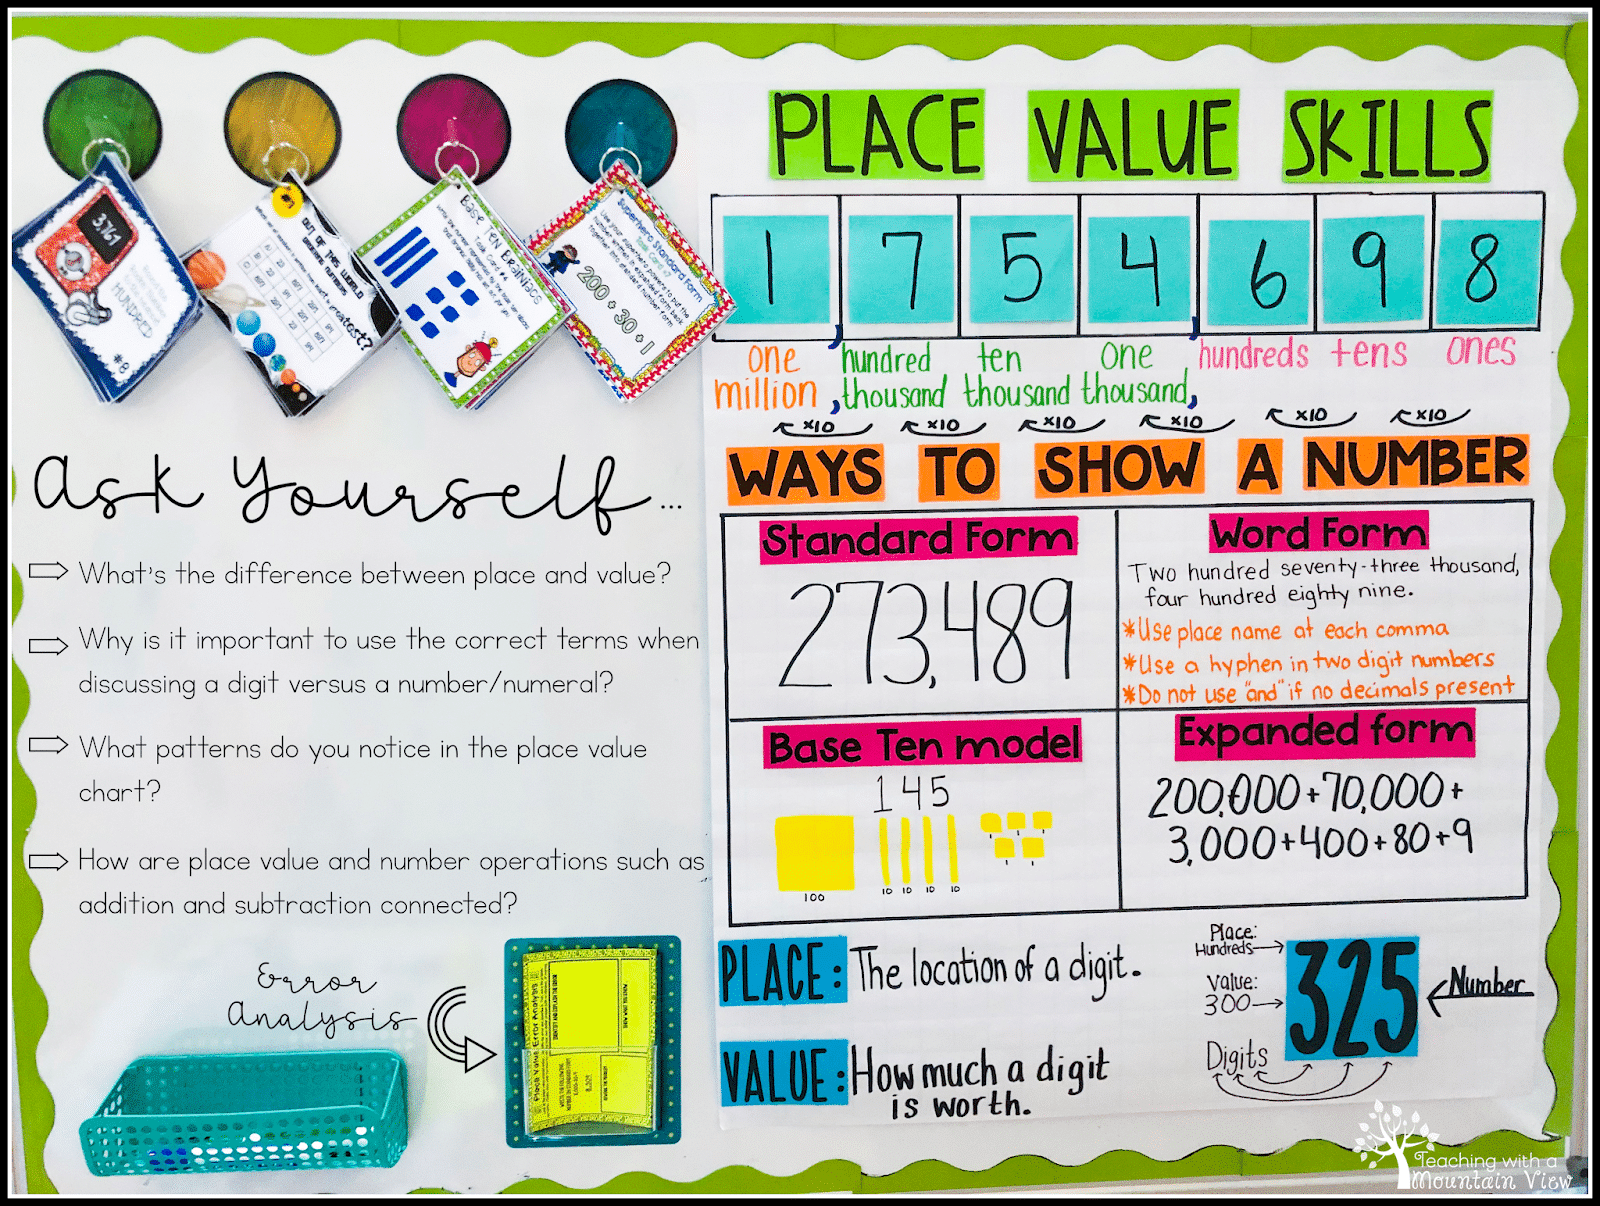 33,767
HUNDRED
#8
OUT OF THIS WORLD
greatest?
Base TEN BRainiacs
Task Card #4
Superhero Standard Form
Task Card #7
Use your superhero powers to put the
number written in expanded form back
together into standard number form
200 + 30 + 1
Ask Yourself...
What's the difference between place and value?
Why is it important to use the correct terms when
discussing a digit versus a number/numeral?
What patterns do you notice in the place value
chart?
How are place value and number operations such as
addition and subtraction connected?
Error
Analysis
Place Value Error Analysis
PLACE VALUE SKILLS
1, 7 5 4, 6 9 8
one hundred ten One hundreds tens ones
million, thousand thousand thousand,
x10 x10 x10 x10 x10 x10
WAYS TO SHOW A NUMBER
Standard Form
273,489
Word Form
Two hundred seventy-three thousand,
four hundred eighty nine.
*Use place name at each comma
*Use a hyphen in two digit numbers
*Do not use "and" if no decimals present
Base Ten model
145
100 10 10 10 10 1 1 1 1 1
Expanded form
200,000+70,000+
3,000+400+80+9
PLACE: The location of a digit.
VALUE: How much a digit
is worth.
Place:
Hundreds
Value:
300
Digits
325
Number
Teaching with a
Mountain View